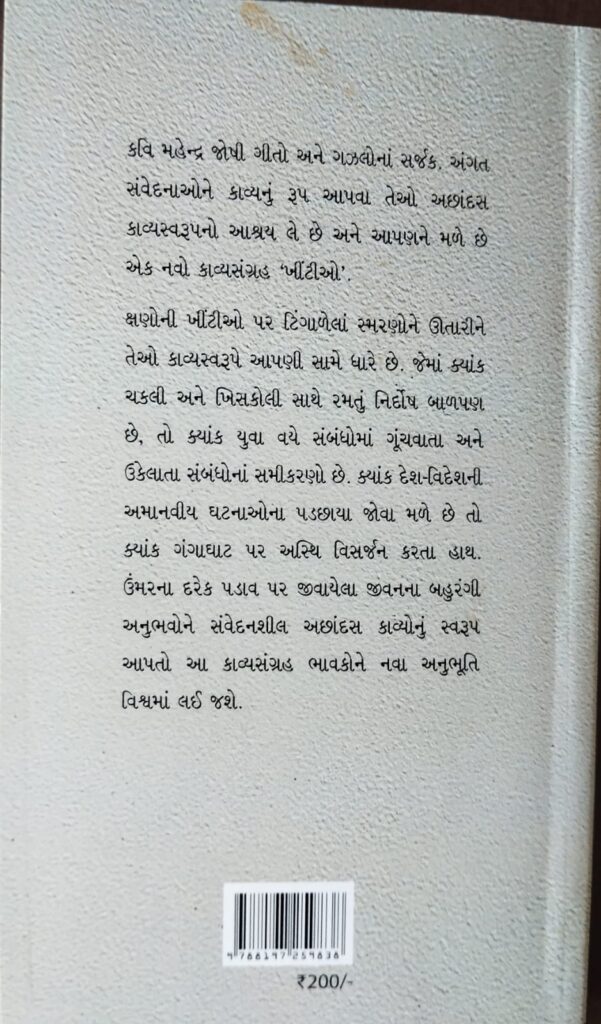 કવિ મહેન્દ્ર જોષી ગીતો અને ગઝલોનાં સર્જક. અંગત
સંવેદનાઓને કાવ્યનું રૂપ આપવા તેઓ અછાંદસ
કાવ્યસ્વરૂપનો આશ્રય લે છે અને આપણને મળે છે
એક નવો કાવ્યસંગ્રહ ‘ખીંટીઓ’.
ક્ષણોની ખીંટીઓ પર ટિંગાળેલાં સ્મરણોને ઊતારીને
તેઓ કાવ્યસ્વરૂપે આપણી સામે ધારે છે. જેમાં ક્યાંક
ચકલી અને ખિસકોલી સાથે રમતું નિર્દોષ બાળપણ
છે, તો ક્યાંક યુવા વયે સંબંધોમાં ગૂંચવાતા અને
ઉકેલાતા સંબંધોનાં સમીકરણો છે. ક્યાંક દેશ-વિદેશની
અમાનવીય ઘટનાઓના પડછાયા જોવા મળે છે તો
ક્યાંક ગંગાઘાટ પર અસ્થિ વિસર્જન કરતા હાથ.
ઉંમરના દરેક પડાવ પર જીવાયેલા જીવનના બહુરંગી
અનુભવોને સંવેદનશીલ અછાંદસ કાવ્યોનું સ્વરૂપ
આપતો આ કાવ્યસંગ્રહ ભાવકોને નવા અનુભૂતિ
વિશ્વમાં લઈ જશે.
9 788197 259838
₹200/-